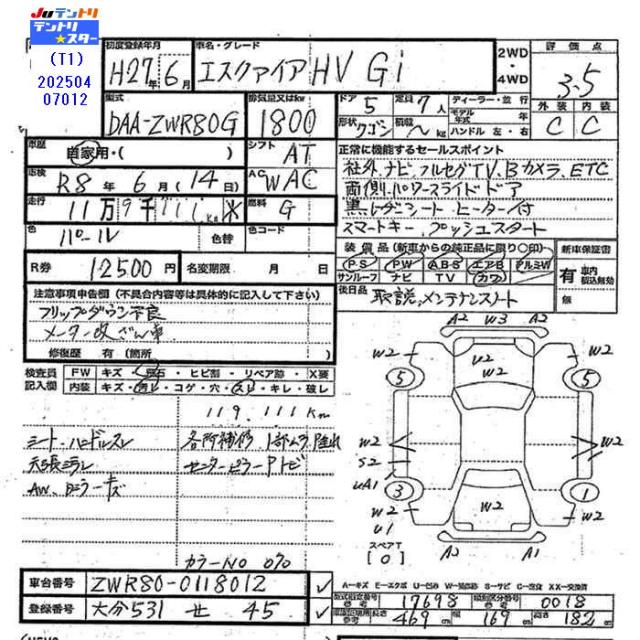 JUテントリ
テントリ
★スター
(T1)
202504
07012
初度登録年月
H27年 6月
車名・グレード
エスクァイア HV Gi
2WD
・
4WD
評価点
3.5
外装 内装
C C
型式
DAA-ZWR80G
排気量又はkw
1800
ドア 5
定員 7人
形状 ワゴン
積載 〜 kg
ディーラー・並行
モデル年式
ハンドル 左・右
車歴
自家用・( )
シフト
AT
正常に機能するセールスポイント
社外ナビ、フルセグTV、Bカメラ、ETC
両側パワースライドドア
シート ヒーター付
スマートキー、プッシュスタート
車検
R8年 6月 (14日)
AC
WAC
走行
11万9千111km
燃料
G
色
パール
色替
色コード
装備品 (新車からの純正品に限り〇印)
P.S PW A・B・S エアB アルミW
サンルーフ ナビ TV カワ
新車保証書
有 車内積込無効
無
R券
12500円
名変期限 月 日
後日品
取説、メンテナンスノート
注意事項申告欄 (不具合内容等は具体的に記入して下さい)
フリップダウン不良
メーター改ざん車
修復歴 有 (箇所
検査員記入欄
FW キズ・飛石・ヒビ割・リペア跡・X要
内装 キズ・汚レ・コゲ・穴・スレ・キレ・破レ
119,111km
シート・ハンドルスレ
各所補修、1部ムラ、
センターピラーアトビ
カラーNO 070
車台番号
ZWR80-0118012
登録番号
大分531 せ 45
A2 W3 A2
W2 U2 W2 W2
5 5
W2 W2
S2
UA1
3 1
W2 W2 W2
U1
A2 A1
スペアT
[0]
A-キズ E-エクボ U-凹み W-補修跡 S-サビ C-腐蝕 XX-交換済
型式指定番号 17698
類別区分番号 0018
長さ 469cm
幅 169cm
高さ 182cm